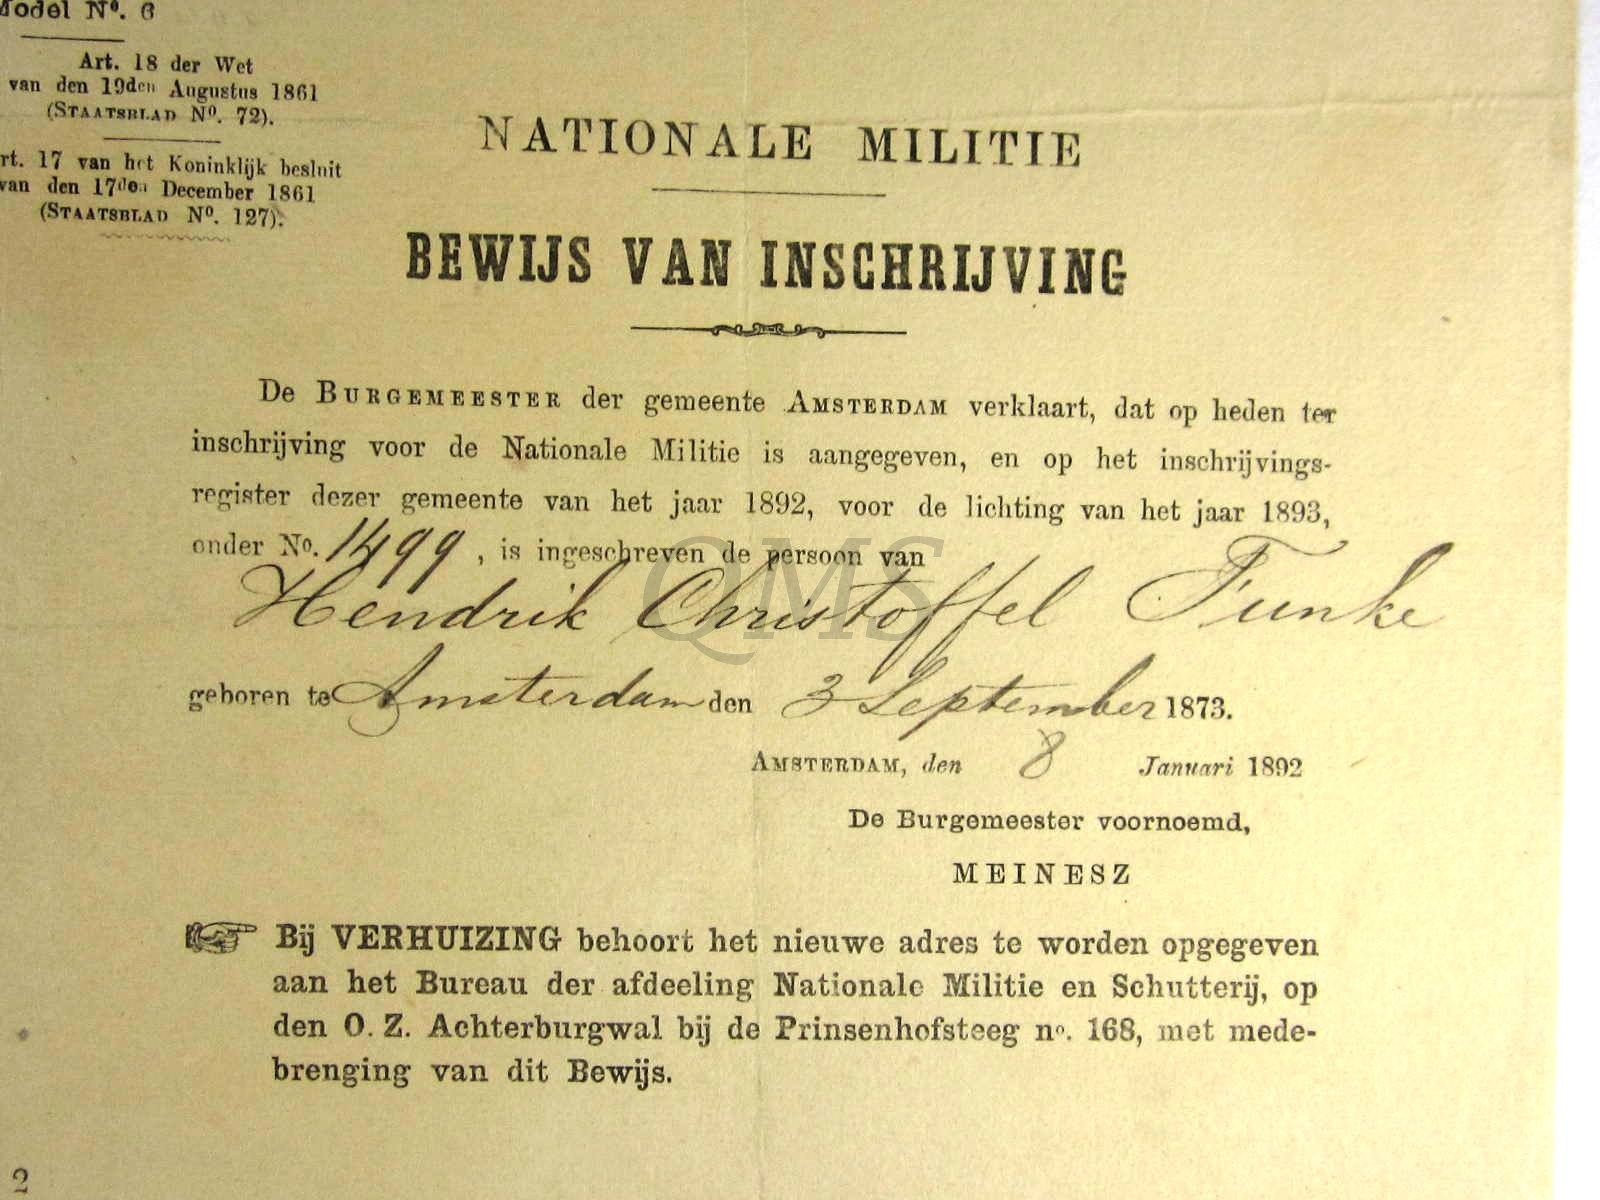 Model No. 6
Art. 18 der Wet
van den 19den Augustus 1861
(STAATSBLAD No. 72).
rt. 17 van het Koninklijk besluit
van den 17den December 1861
(STAATSBLAD No. 127).
NATIONALE MILITIE
BEWIJS VAN INSCHRIJVING
De BURGEMEESTER der gemeente AMSTERDAM verklaart, dat op heden ter
inschrijving voor de Nationale Militie is aangegeven, en op het inschrijvings-
register dezer gemeente van het jaar 1892, voor de lichting van het jaar 1893,
onder No. 1499, is ingeschreven de persoon van
Hendrik Christoffel Funke
geboren te Amsterdam den 3 September 1873.
AMSTERDAM, den 8 Januari 1892
De Burgemeester voornoemd,
MEINESZ
Bij VERHUIZING behoort het nieuwe adres te worden opgegeven
aan het Bureau der afdeeling Nationale Militie en Schutterij, op
den O. Z. Achterburgwal bij de Prinsenhofsteeg no. 168, met mede-
brenging van dit Bewijs.
2
QMS